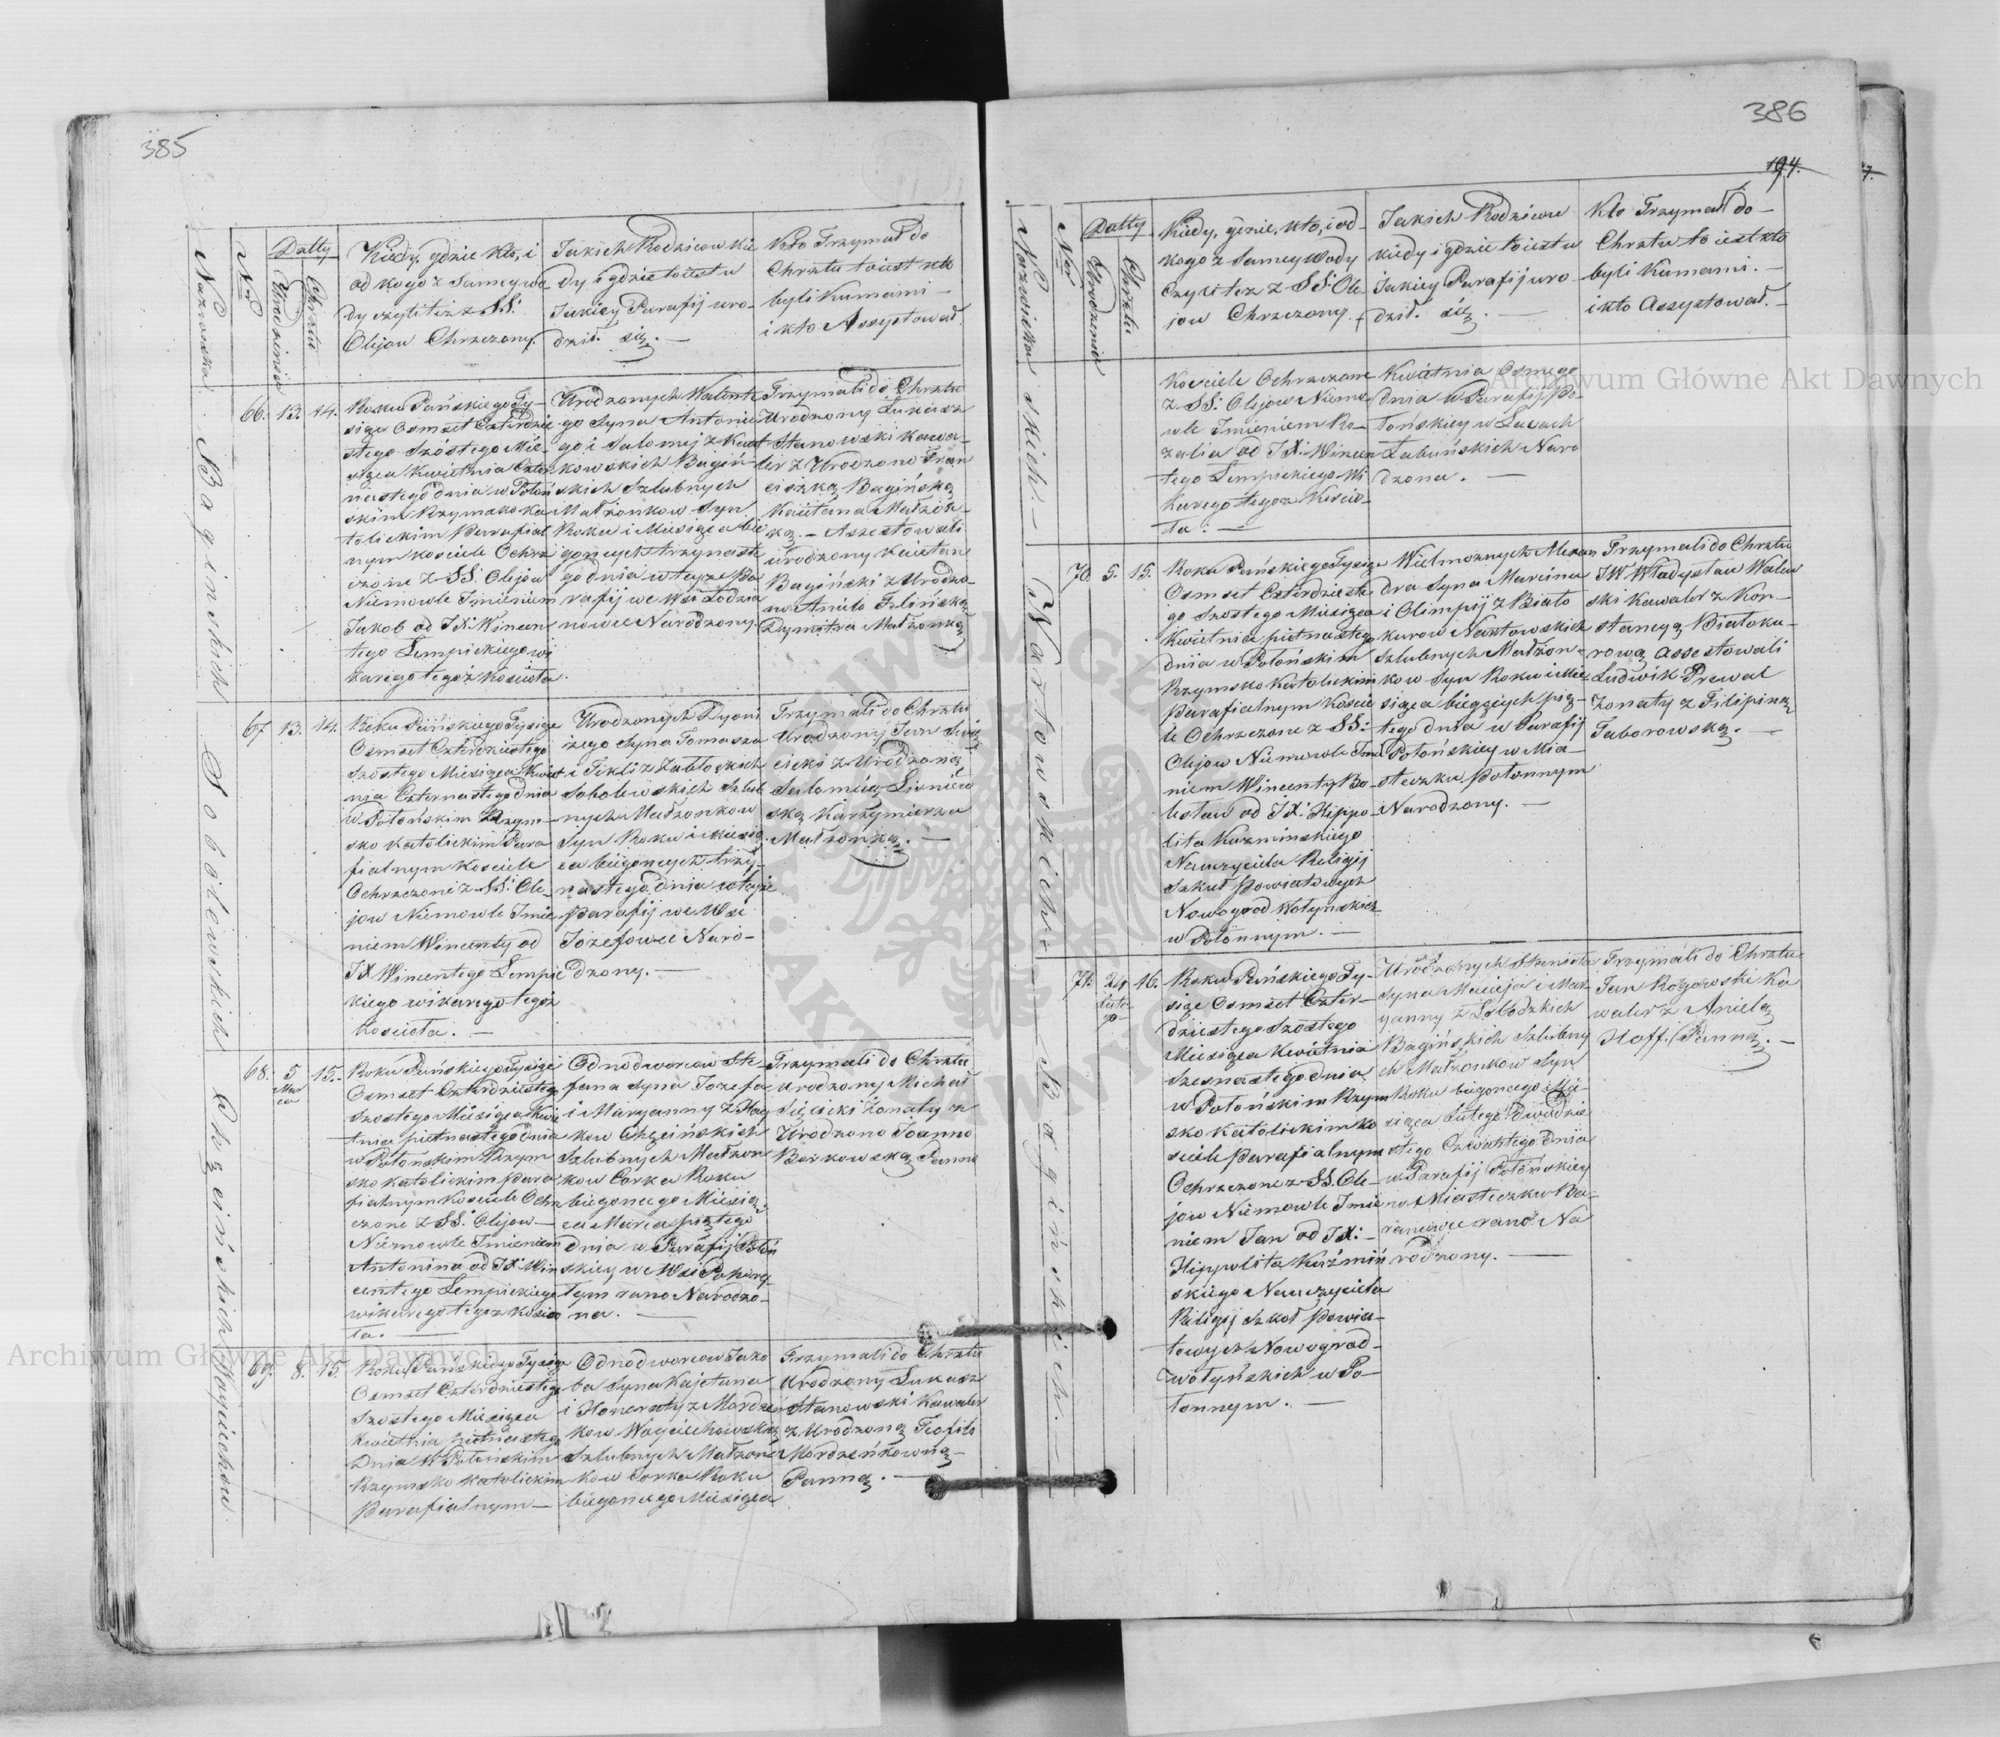 385
Nazwiska
Nr
Datty
Urodzenia
Chrztu
Kiedy, gdzie kto, i
od kogo z samey wo
dy czyli też z SS:
Olejow Chrzczony.
Jakich Rodzicow kie
dy i gdzie to iest w
Jakiey Parafij uro-
dził się. —
Kto Trzymał do
Chrztu to iest kto
byli Kumami —
i kto Assystował.
Baginskich
66. 13. 14.
Roku Pańskiego Ty-
siąc Osmset Czterdzie
stego Szóstego Mie-
siąca Kwietnia Czter
nastego dnia w Połoń
skim Rzymsko ka
tolickim Parafial
nym kosciele Ochrz
czone z SS. Olejow
Niemowle Imieniem
Jakob od JX: Wincen
tego Lempickiego wi
karego tegoż koscioła.
Urodzonych Walente
go Syna Antonie
go i Salomej z Kwiat
kowskich Bagiń-
skich Szlubnych
Małżonkow Syn
Roku i Miesiąca bie
gących trzynaste
go dnia w tejze Pa
rafij we Wsi Łodzia
nowce Narodzony.
Trzymali do Chrztu
Urodzony Łukasz
Stanowski kawa-
ler z Urodzoną Fran
ciszką Bagińską
Kaietana Małżon-
ką. — Assestowali
urodzony Kaietan
Bagiński z Urodzo-
ną Anielą Izlińską
Dymitra Małżonką
Sobolewskich
67. 13. 14.
Roku Pańskiego Tysiąc
Osmset Czterdziestego
Szostego Miesiąca Kwiet
nia Czternastego dnia
w Połońskim Rzym-
sko katolickim Para
fialnym kosciele
Ochrzczone z SS: Ole-
jow Niemowle Imie
niem Wincenty od
JX Wincentego Lempic
kiego wikarego tegoż
kosciola. —
Urodzonych Dyoni
zego Syna Tomasza
i Tekli z Zabłockich
Sobolewskich Szlub
nych Małżonkow
Syn Roku i miesią
ca biegących trzy-
nastego dnia w tejże
Parafij we Wsi
Jozefowce Naro-
dzony. —
Trzymali do Chrztu
Urodzony Jan Swię
cicki z Urodzoną
Salomeią Lisniew
ską Kazymierza
Małżonką. —
Chzcińskich
68. 5 Marca 15.
Roku Pańskiego Tysiąc
Osmset Czterdziestego
Szostego Miesiąca Kwie
tnia pietnastego dnia
w Połońskim Rzym
sko katolickim para
fialnym Kosciele Ochrz
czone z SS: Olejow —
Niemowle Imieniem
Antonina od JX Win
centego Lempickiego
wikarego tegoż koscio
ła. —
Odnodworcow Ste-
fana Syna Jozefa
i Maryanny z Hay
kow Chzcińskich
Szlubnych Małżon
kow Corka Roku
biegonego Miesią-
ca Marca piątego
dnia w Parafij Połoń
skiey we Wsi Pohore-
łym rano Narodzo-
na. —
Trzymali do Chrztu
urodzony Michał
Sięcicki Żonaty z
Urodzono Joanno
Boikowską Panno
Woyciechow
69. 8. 15.
Roku Pańskiego Tysiąc
Osmset Czterdziestego
Szostego Miesiąca
Kwietnia pietnastego
dnia w Połońskim
Rzymsko katolickim
Parafialnym —
Odnodworcow Jako
ba Syna Kajetana
i Honoraty z Mordzeń
kow Woyciechowskich
Szlubnych Małżon
kow Corka Roku
biegonego Miesiąca
Trzymali do Chrztu
Urodzony Łukasz
Stanowski Kawaler
z Urodzoną Teofilo
Mordzeńkowną —
Panną. —
386
194.
Nazwiska
Nr
Datty
Urodzenia
Chrztu
Kiedy, gdzie, kto, i od
kogo z samey Wody
Czyli też z SS: Ole-
jow Chrzczony.
Jakich Rodzicow
kiedy i gdzie to iest w
Jakiey Parafij uro
dził się. —
Kto Trzymał do —
Chrztu to iest kto
byli Kumami. —
i kto Assystował. —
skich. —
Kosciele Ochrzczone
z SS: Olejow Niemo
wle Imieniem Ro-
zalia od JX: Wincen
tego Lempickiego Wi
karego tegoż Koscio-
ła: —
Kwietnia Osmego
dnia w Parafij Po-
łońskiey w Lasach
Łabuńskich Naro
dzona. —
Nartowskich —
70. 5. 15.
Roku Pańskiego Tysiąc
Osmset Czterdzieste
go Szostego Miesiąca
Kwietnia pietnastego
dnia w Połońskim
Rzymsko Katolickim
Parafialnym Koscie
le Ochrzczone z SS:
Olejow Niemowle Imie
niem Wincenty Bo-
lesław od JX: Hippo-
lita Kuzminskiego
Nauczyciela Religij
Szkuł Powiatowych
Nowogrod Wołynskich
w Połonnym. —
Wielmoznych Alexan
dra Syna Marcina
i Olimpij z Biało
kurow Nartowskich
Szlubnych Małżon-
kow Syn Roku i Mie
siąca biegących pią-
tego dnia w Parafij
Połońskiey w Mia-
steczku Połonnym
Narodzony. —
Trzymali do Chrztu
JW Władysław Walew
ski Kawaler z Kon-
stancyą Białoku-
rową assestowali
Ludwik Prewal
Zonaty z Filipiną
Taborowską. —
Bagińskich. —
71. 24 Lutego 16.
Roku Pańskiego Ty-
siąc Osmset Czter-
dziestego Szostego
Miesiąca Kwietnia
Szesnastego dnia
w Połońskim Rzym
sko Katolickim ko
sciele parafialnym
Ochrzczone z SS. Ole-
jow Niemowle Imie
niem Jan od JX: —
Hippolita Kuźmiń
skiego Nauczyciela
Religij Szkoł Powia-
towych Nowogrod-
wołyńskich w Po-
łonnym. —
Urodzonych Stanisła
Syna Macieja i Mar-
yanny z Łobodzkich
Bagińskich Szlubny
ch Małżonkow Syn
Roku biegonego Mie-
siąca Lutego Dwudzie
stego Czwartego dnia
w Parafij Połońskiey
w Miasteczku Ba-
ranowce rano Na
rodzony. —
Trzymali do Chrztu
Jan Rogowski Ka
waler z Anielą
Hoff. Panną. —
Archiwum Główne Akt Dawnych
Archiwum Główne Akt Dawnych